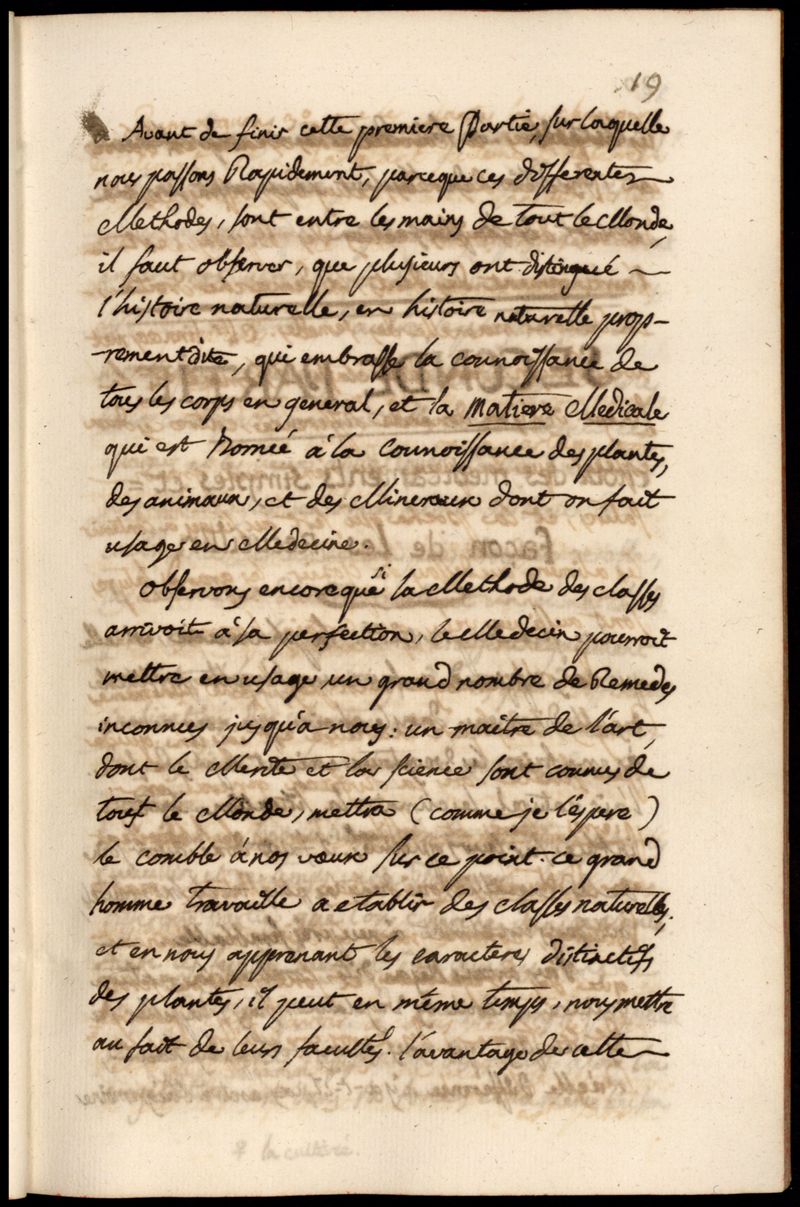 19
Avant de finir cette premiere Partie, sur laquelle
nous passons Rapidement, parceque ces differentes
Methodes, sont entre les mains de tout le Monde,
il faut observer, que plusieurs ont distingué
l'histoire naturelle, en histoire naturelle prop-
-rement dite, qui embrasse la connoissance de
tous les corps en general, et la Matiere Medicale
qui est Bornéé à la connoissance des plantes,
des animaux, et des Mineraux dont on fait
usage en Medecine.
Observons encore que si la Methode des classes
arrivoit à sa perfection, le Medecin pourroit
mettre en usage un grand nombre de Remedes
inconnues jusqu'a nous: un maitre de l'art,
dont le Merite et la science sont connus de
tout le Monde, mettra (comme je l'éspere)
le comble à nos vœux sur ce point. ce grand
homme travaille a etablir des classes naturelles,
et en nous apprenant les caracteres distinctifs
des plantes, il peut en même temps, nous mettre
au fait de leurs facultés. l'avantage de cette
* la culture.